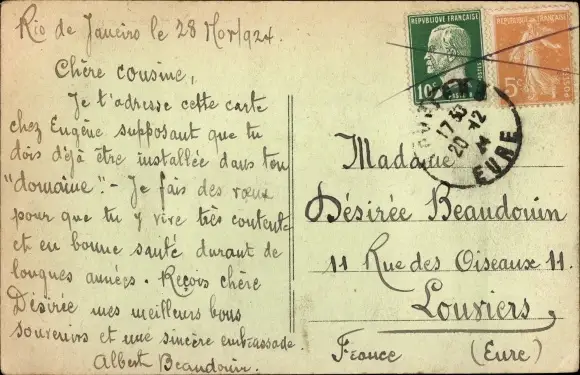 Rio de Janeiro le 28 Nov/924.
Chère cousine,
Je t'adresse cette carte
chez Eugène supposant que tu
dois déjà être installée dans ton
"domaine". - Je fais des vœux
pour que tu y vive très contente
et en bonne santé durant de
longues années. Reçois chère
Désirée mes meilleurs bons
souvenirs et une sincère embrassade.
Albert Beaudouin.
REPUBLIQUE FRANÇAISE
10c
POSTES
REPUBLIQUE FRANÇAISE
5c
POSTES
17 30
20 -12
24
EURE
Madame
Désirée Beaudouin
11 Rue des Oiseaux 11.
Louviers,
France (Eure)